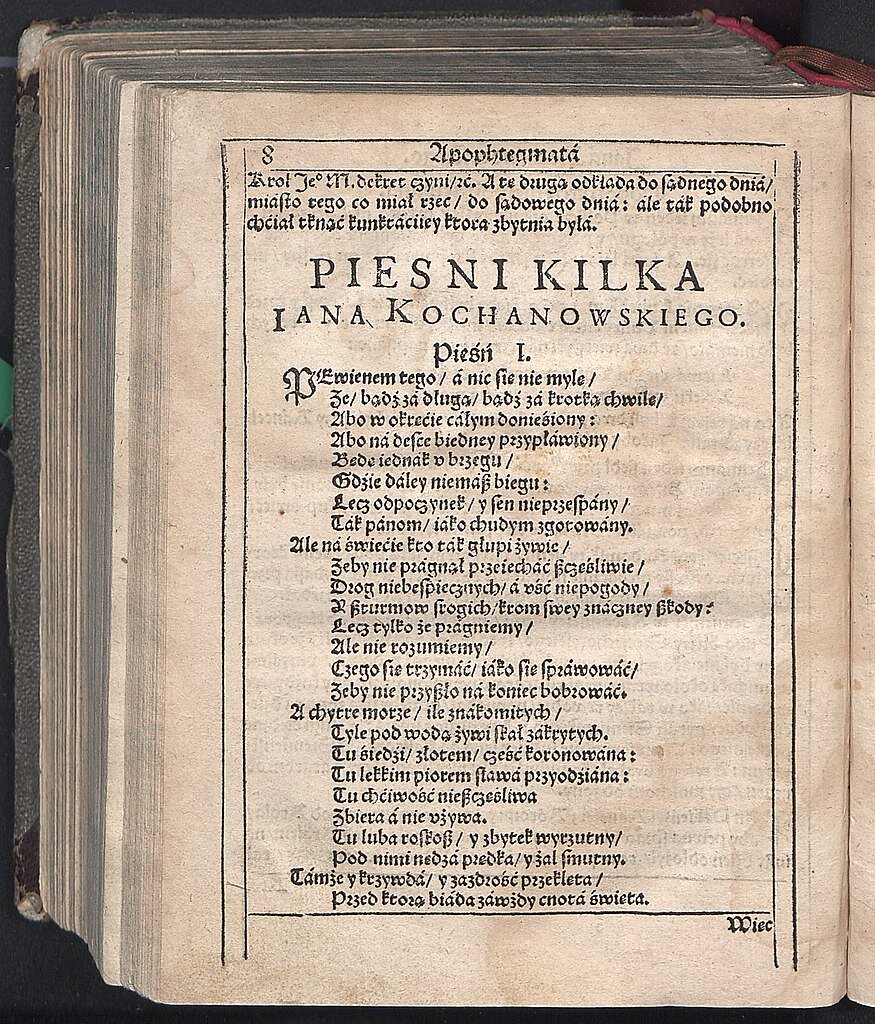 8 Apophtegmatá
Krol Jeº M. dekret czyni/ ꝛc. A te drugą odkłada do sądnego dniá/
miásto tego co miał rzec/ do sądowego dniá: ale ták podobno
chćiał tknąć kunktáciiey ktora zbytnia byłá.
PIESNI KILKA
IANA KOCHANOWSKIEGO.
Pieśń I.
PEwienem tego/ á nic sie nie mylę/
Że/ bądź zá długą/ bądź zá krotką chwilę/
Abo w okręćie cáłym donieśiony:
Abo ná desce biedney przypłáwiony/
Będę iednak v brzegu/
Gdźie dáley niemáß biegu:
Lecz odpoczynek/ y sen nieprzespány/
Ták pánom/ iáko chudym zgotowány.
Ale ná świećie kto ták głupi żywie/
Żeby nie prágnął przeiecháć ßczęśliwie/
Drog niebespiecznych/ á vść niepogody/
Y ßturmow srogich/ krom swey znáczney ßkody:
Lecz tylko że prágniemy/
Ale nie rozumiemy/
Czego sie trzymáć/ iáko sie spráwowáć/
Żeby nie przyßło ná koniec bobrowáć.
A chytre morze/ ile znákomitych/
Tyle pod wodą żywi skał zákrytych.
Tu śiedźi/ złotem/ cześć koronowána:
Tu lekkim piorem sławá przyodźiána:
Tu chćiwość nießczęśliwa
Zbiera á nie vżywa.
Tu luba roskoß/ y zbytek wyrzutny/
Pod nimi nędzá prędka/ y żal smutny.
Támże y krzywdá/ y zazdrość przeklęta/
Przed ktorą biáda záwżdy cnotá święta.
Więc